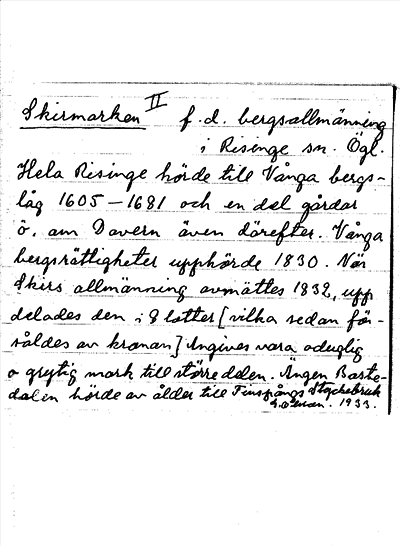 Skirmarken II f.d. bergsallmänning
i Risinge sn. Ögl.
Hela Risinge hörde till Vånga bergs-
lag 1605-1681 och en del gårdar
ö. om Davern även därefter. Vånga
bergsrättigheter upphörde 1830. När
Skirs allmänning avmättes 1832, upp
delades den i 8 lotter [vilka sedan för-
såldes av kronan] Angives vara oduglig
o grytig mark till större delen. Ängen Baste-
dalen hörde av ålder till Finspångs Styckebruk
G. 1933.